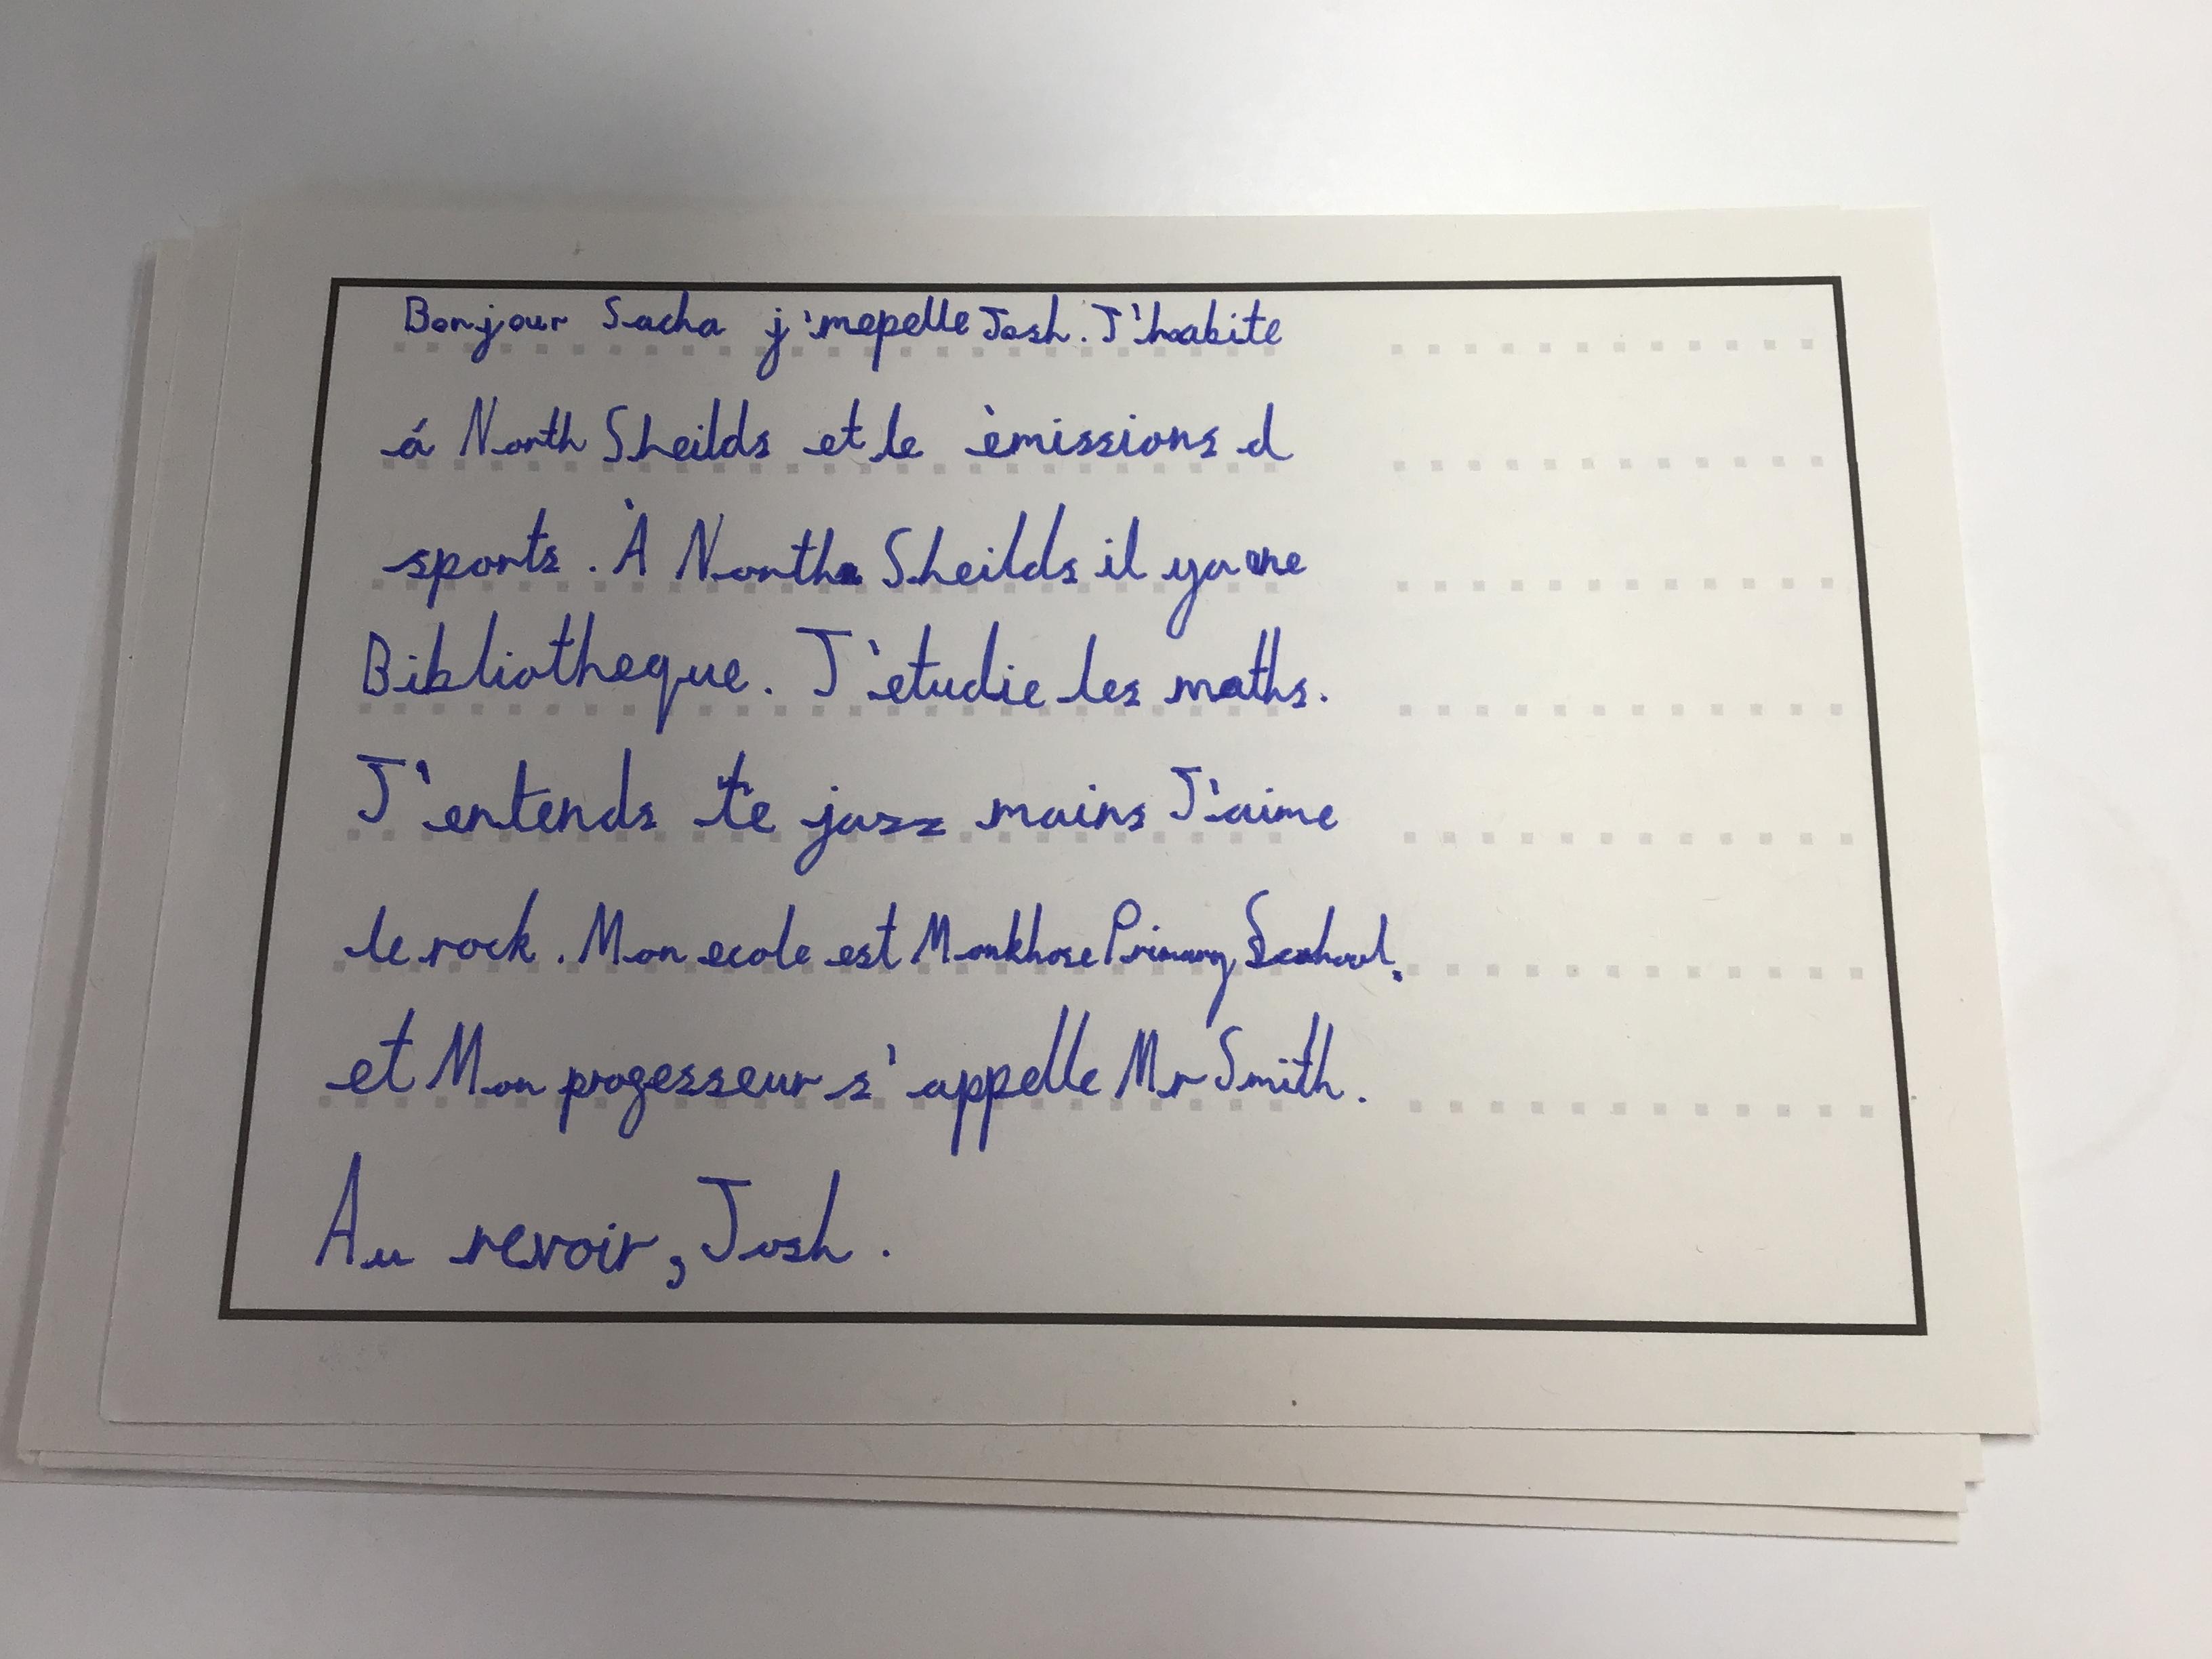 Bonjour Sacha j'mepelle Josh. J'habite
á North Sheilds et le èmissions d
sports. À North Sheilds il ya une
Bibliotheque. J'etudie les maths.
J'entends te jazz mains J'aime
le rock. Mon ecole est Monkhose Primary School.
et Mon progesseur s'appelle Mr Smith.
Au revoir, Josh.